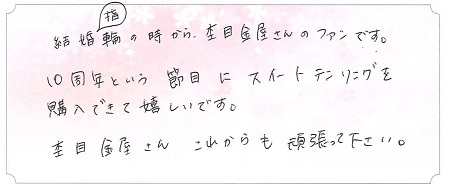 結婚指輪の時から、杢目金屋さんのファンです。
10周年という節目にスイートテンリングを
購入できて嬉しいです。
杢目金屋さん これからも頑張って下さい。